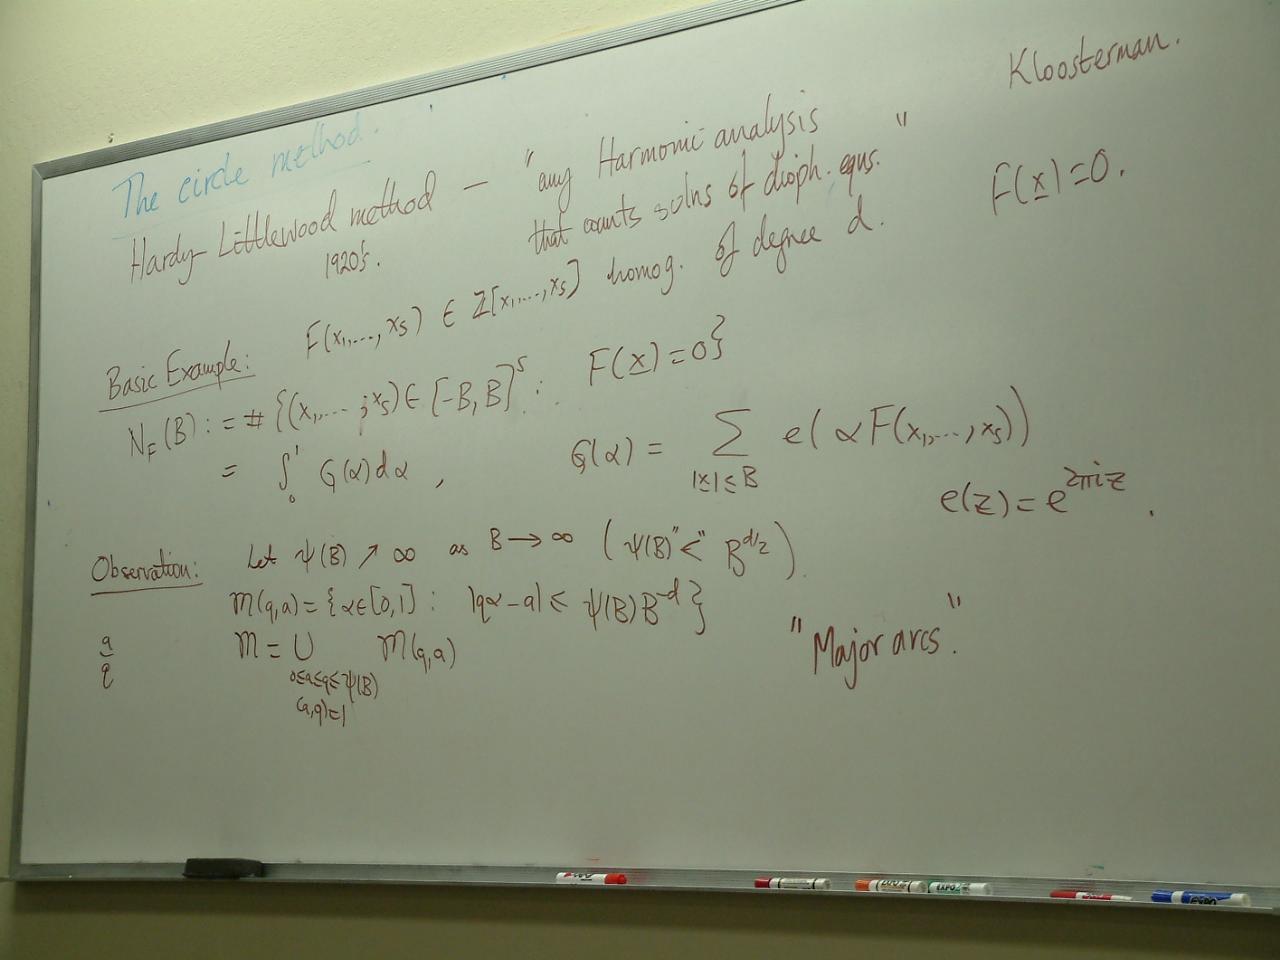 The circle method.
Kloosterman.
Hardy-Littlewood method — "any Harmonic analysis
1920's.
that counts solns of dioph. eqns."
F(x)=0.
Basic Example:
F(x₁,...,xₛ) ∈ Z[x₁,...,xₛ] homog. of degree d.
N_F(B) := #{(x₁,...,xₛ) ∈ [-B,B]^s : F(x)=0}
= ∫₀¹ G(α)dα , G(α) = ∑_{|x|≤B} e(αF(x₁,...,xₛ))
e(z)=e^{2πiz}.
Observation: Let ψ(B) ↗ ∞ as B → ∞ (ψ(B) "<" B^{d/2}).
m(q,a) = {α∈[0,1] : |qα-a| ≤ ψ(B)B^{-d}}
a/q
m = ∪_{0≤a≤q≤ψ(B) (a,q)=1} m(q,a)
"Major arcs."
EXPO
EXPO
EXPO